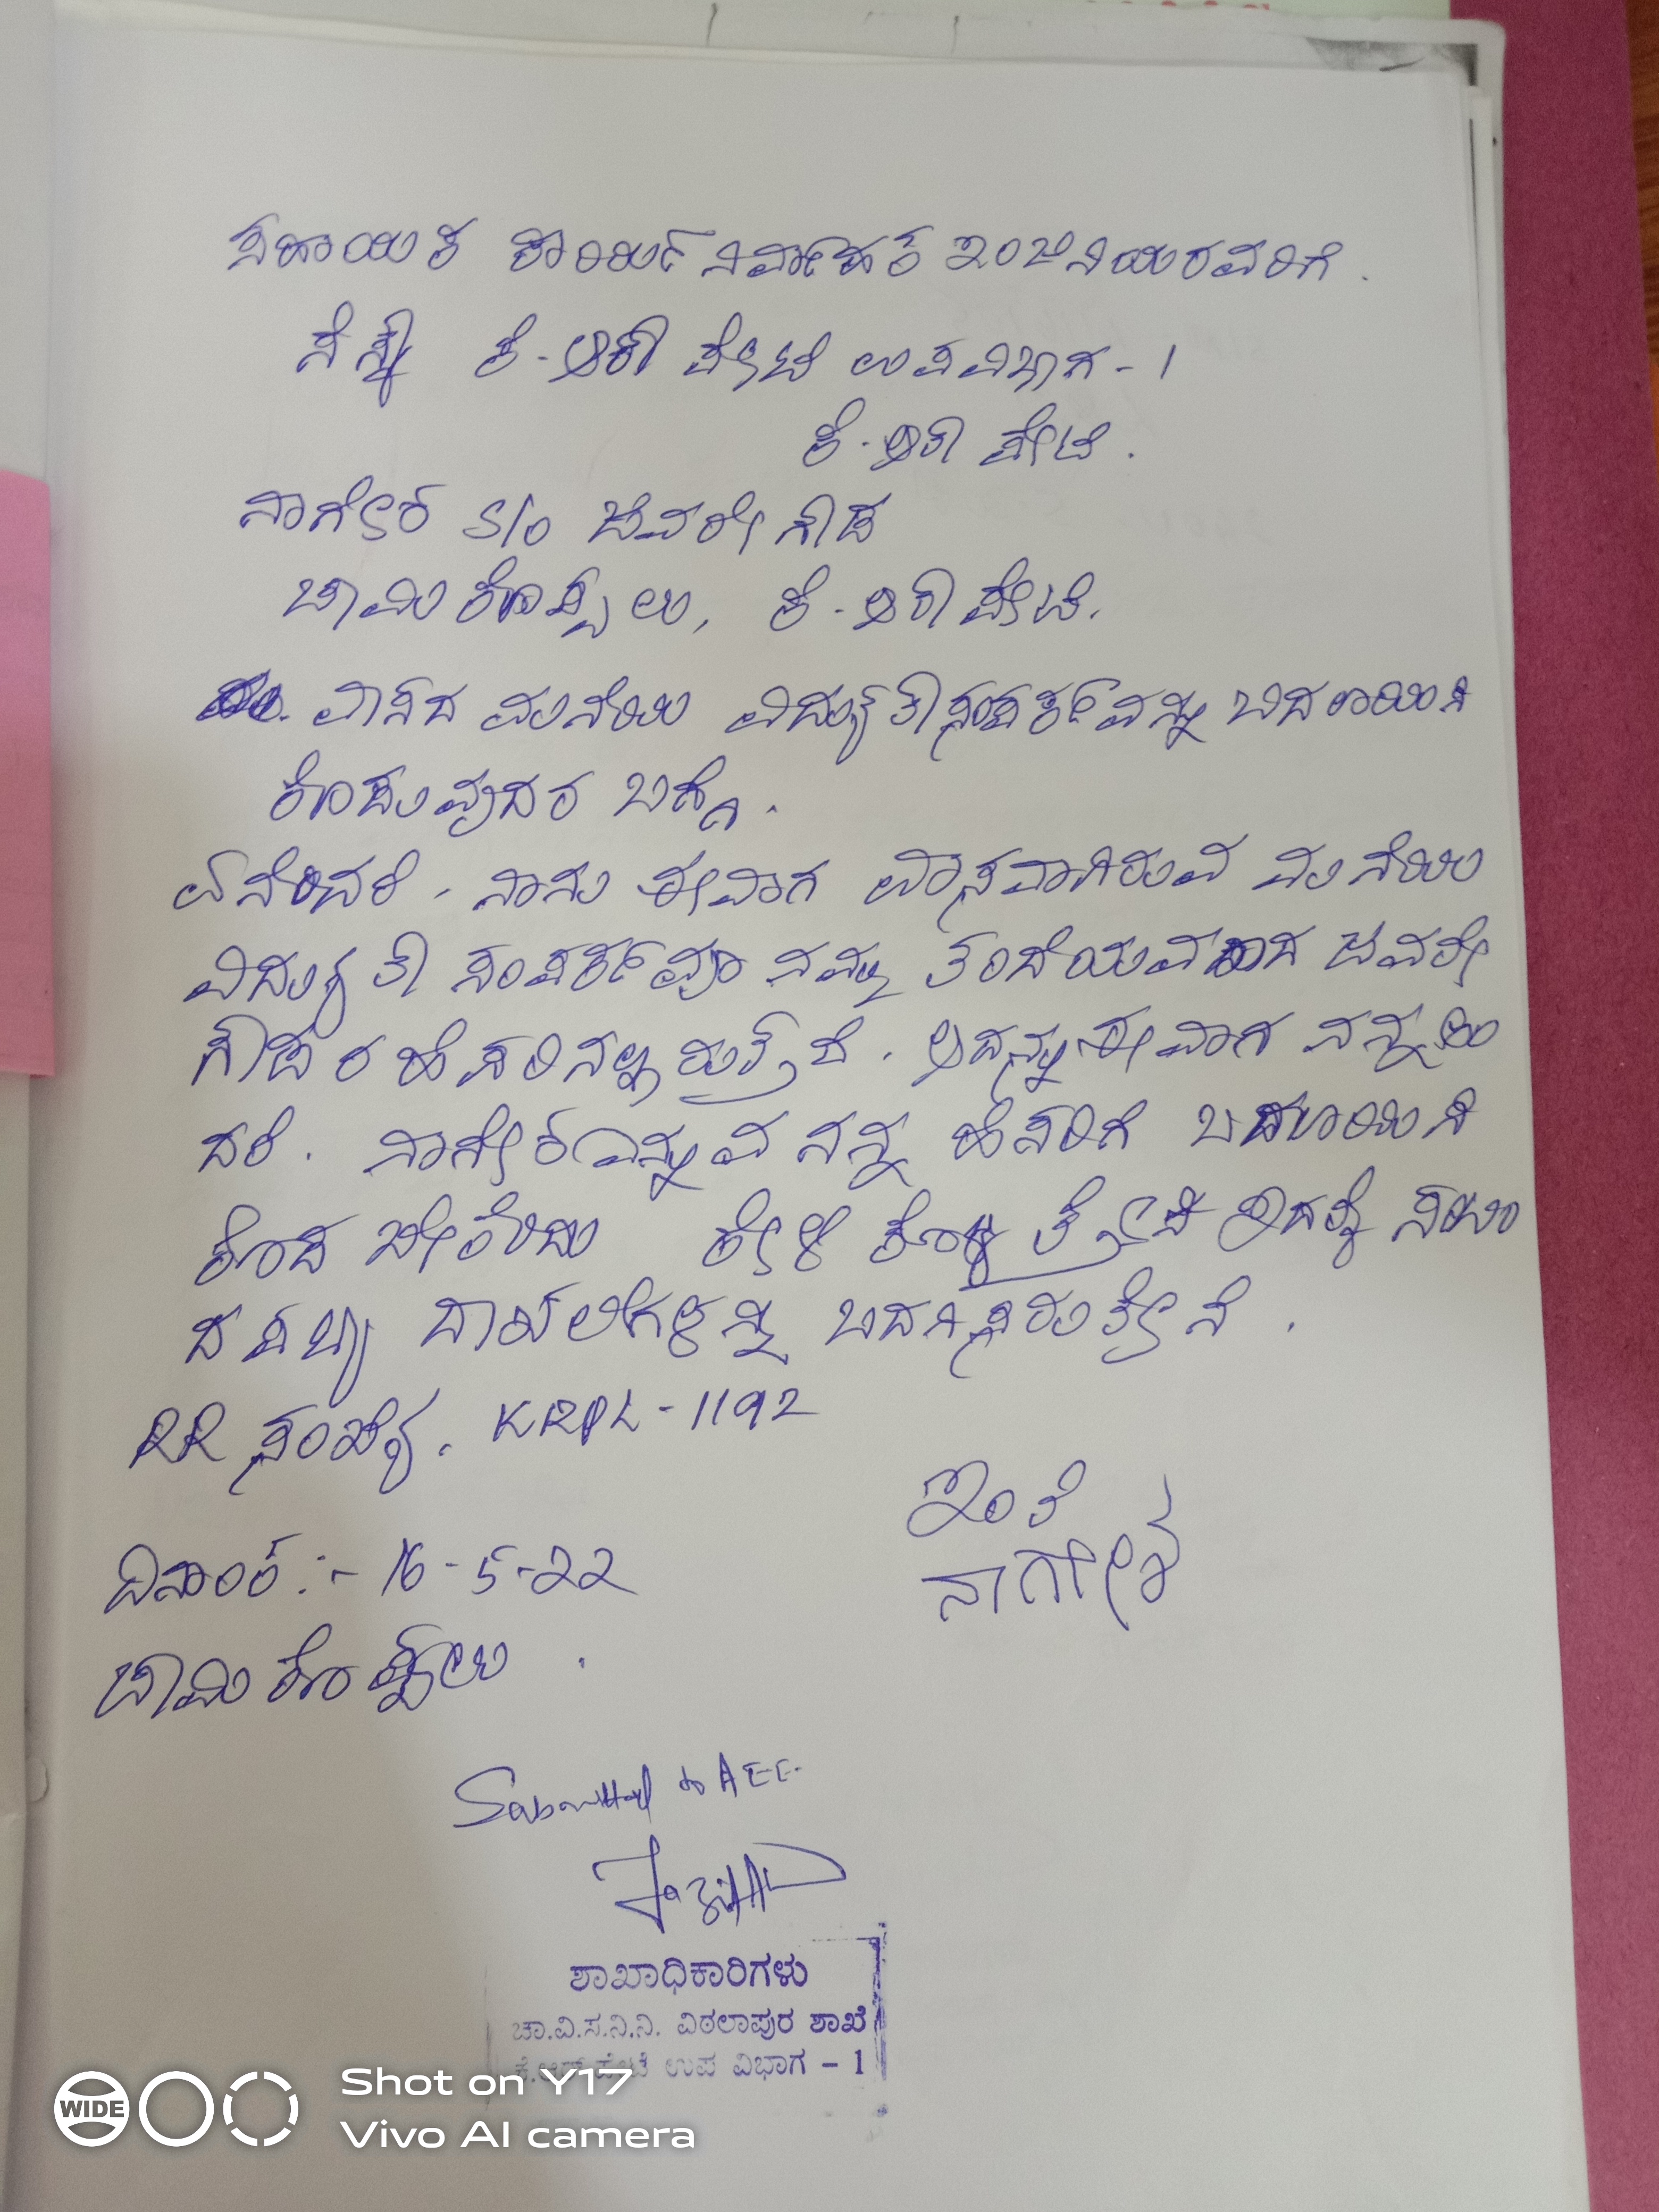 ಸಹಾಯಕ ಕಾರ್ಯನಿರ್ವಾಹಕ ಇಂಜಿನಿಯರವರಿಗೆ.
ಸೆಸ್ಕ್ ಕೆ-ಆರ್ ಪೇಟೆ ಉಪವಿಭಾಗ-1
ಕೆ-ಆರ್ ಪೇಟೆ.
ನಾಗೇಶ S/o ಜವರೇಗೌಡ
ಚಾಮಿಕೊಪ್ಪಲು, ಕೆ-ಆರ್ ಪೇಟೆ.
ವಾಸದ ಮನೆಯ ವಿದ್ಯುತ್ ಸಂಪರ್ಕವನ್ನು ಬದಲಾಯಿಸಿ
ಕೊಡುವುದರ ಬಗ್ಗೆ.
ಏನೆಂದರೆ. ನಾನು ಈವಾಗ ವಾಸವಾಗಿರುವ ಮನೆಯ
ವಿದ್ಯುತ್ ಸಂಪರ್ಕವು ನಮ್ಮ ತಂದೆಯವರಾದ ಜವರೇ
ಗೌಡರ ಹೆಸರಿನಲ್ಲಿರುತ್ತದೆ. ಅದನ್ನು ಈವಾಗ
ದರೆ. ನಾಗೇಶ ಎನ್ನುವ ನನ್ನ ಹೆಸರಿಗೆ ಬದಲಾಯಿಸಿ
ಕೊಡಬೇಕೆಂದು ಕೇಳಿಕೊಳ್ಳುತ್ತೇನೆ ಇದಕ್ಕೆ ಸಂಬಂ
ದಪಟ್ಟ ದಾಖಲೆಗಳನ್ನು ಒದಗಿಸಿರುತ್ತೇನೆ.
RR ಸಂಖ್ಯೆ. KRPL-1192
ಇಂತಿ
ನಾಗೇಶ
ದಿನಾಂಕ:- 16-5-22
ಚಾಮಿಕೊಪ್ಪಲು.
Submitted to AEE.
ಶಾಖಾಧಿಕಾರಿಗಳು
ಚಾ.ವಿ.ಸ.ನಿ.ನಿ. ವಿಠಲಾಪುರ ಶಾಖೆ
ಕೆ.ಆರ್.ಪೇಟೆ ಉಪ ವಿಭಾಗ - 1
WIDE
Shot on Y17
Vivo AI camera